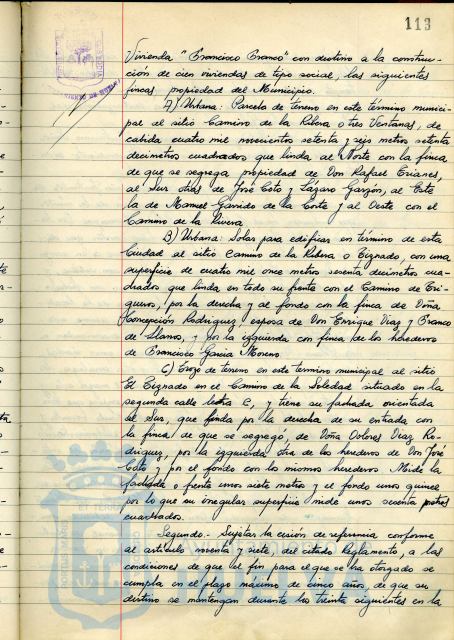 113
Vivienda "Francisco Franco" con destino a la construc-
ción de cien viviendas de tipo social, las siguientes
fincas propiedad del Municipio.
A) Urbana: Parcela de terreno en este término munici-
pal al sitio Camino de la Ribera o tres Ventanas, de
cabida cuatro mil novecientos setenta y seis metros setenta
decímetros cuadrados que linda al Norte con la finca
de que se segrega propiedad de Don Rafael
al Sur otras de José Coto y Lázaro Garzón, al Este
la de Manuel Garrido de la Corte y al Oeste con el
Camino de la Rivera
B) Urbana: Solar para edificar en término de esta
Ciudad al sitio Camino de la Ribera o Tiznado, con una
superficie de cuatro mil once metros sesenta decímetros cua-
drados que linda en todo su frente con el Camino de Tri-
gueros, por la derecha y al fondo con la finca de Doña
Concepción Rodriguez, esposa de Don Enrique Diaz y Franco
de Llanos, y por la izquierda con finca de los herederos
de Francisco Garcia Moreno
C) Trozo de terreno en este termino municipal al sitio
El Tiznado en el Camino de la Soledad situado en la
segunda calle letra C, y tiene su fachada orientada
al Sur, que linda por la derecha de su entrada con
la finca de que se segrego, de Doña Dolores Diaz Ro-
driguez, por la izquierda otra de los herederos de Don José
Coto y por el fondo con los mismos herederos. Mide la
fachada o frente unos siete metros y el fondo unos quince
por lo que su irregular superficie mide unos sesenta metros
cuadrados.
Segundo.- Sujetar la cesión de referencia conforme
al artículo noventa y siete, del citado Reglamento, a las
condiciones de que el fin para el que se ha otorgado se
cumpla en el plazo máximo de cinco años, de que su
destino se mantengan durante los treinta siguientes en la